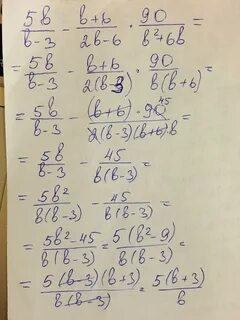 5b/(b-3) - (b+6)/(2b-6) · 90/(b²+6b) =
= 5b/(b-3) - (b+6)/(2(b-3)) · 90/(b(b+6)) =
= 5b/(b-3) - ((b+6) · 90 45)/(2(b-3)(b+6)b) =
= 5b/(b-3) - 45/(b(b-3)) =
= 5b²/(b(b-3)) - 45/(b(b-3)) =
= (5b²-45)/(b(b-3)) = 5(b²-9)/(b(b-3)) =
= 5(b-3)(b+3)/(b(b-3)) = 5(b+3)/b